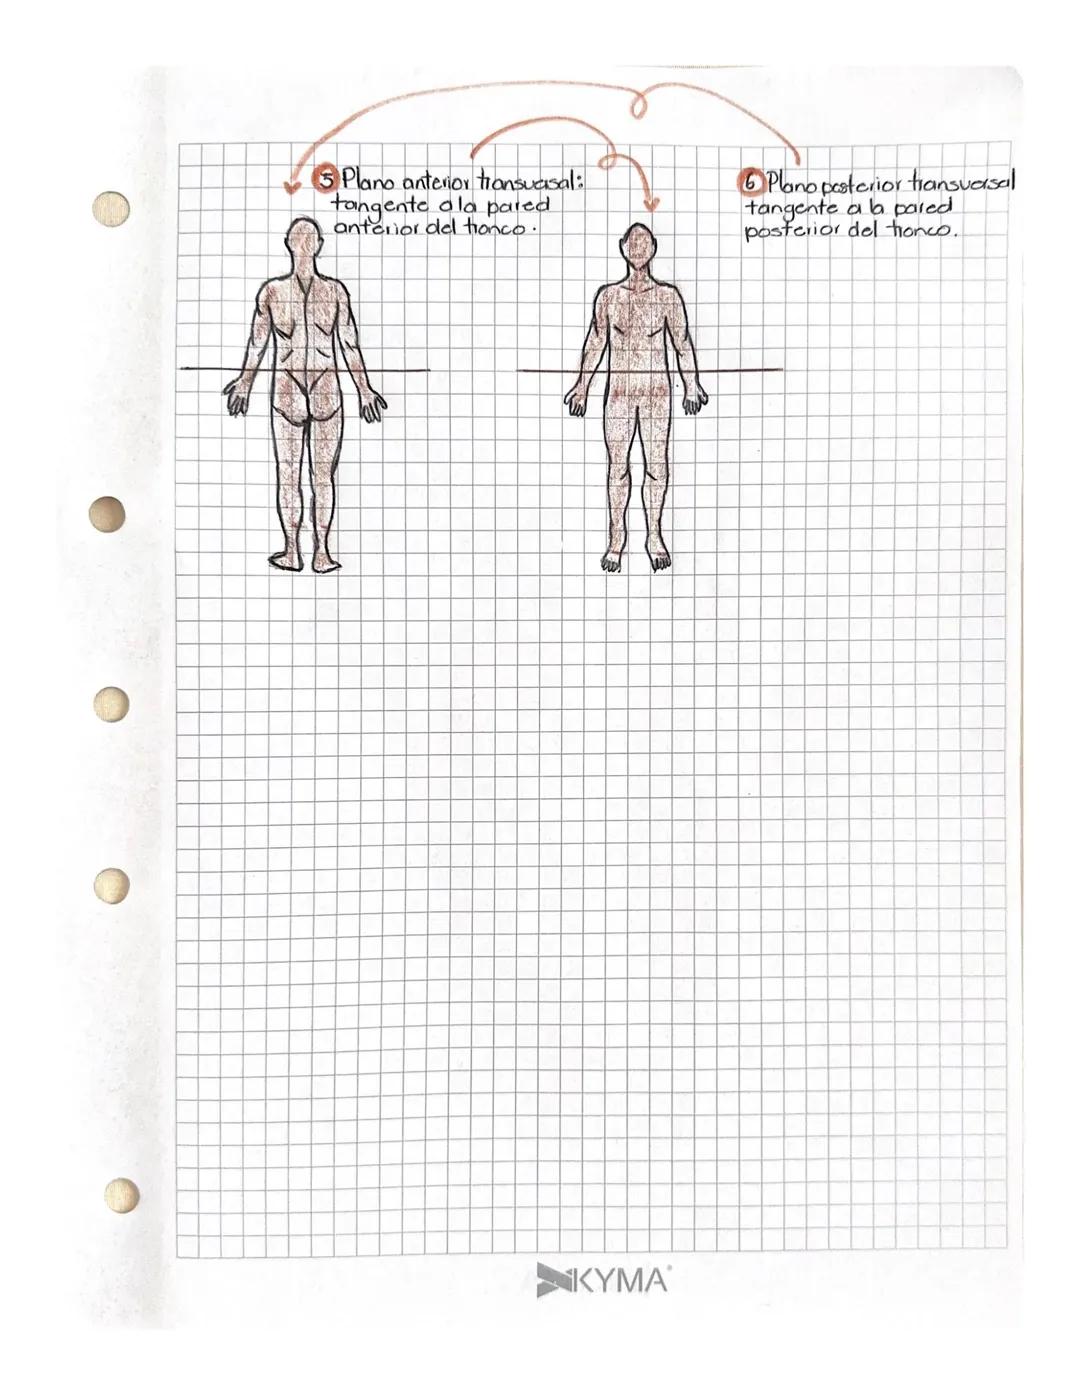 5 Plano anterior transversal:
tangente a la pared
anterior del tronco.
6 Plano posterior transversal
tangente a la pared
posterior del tronco.
KYMA